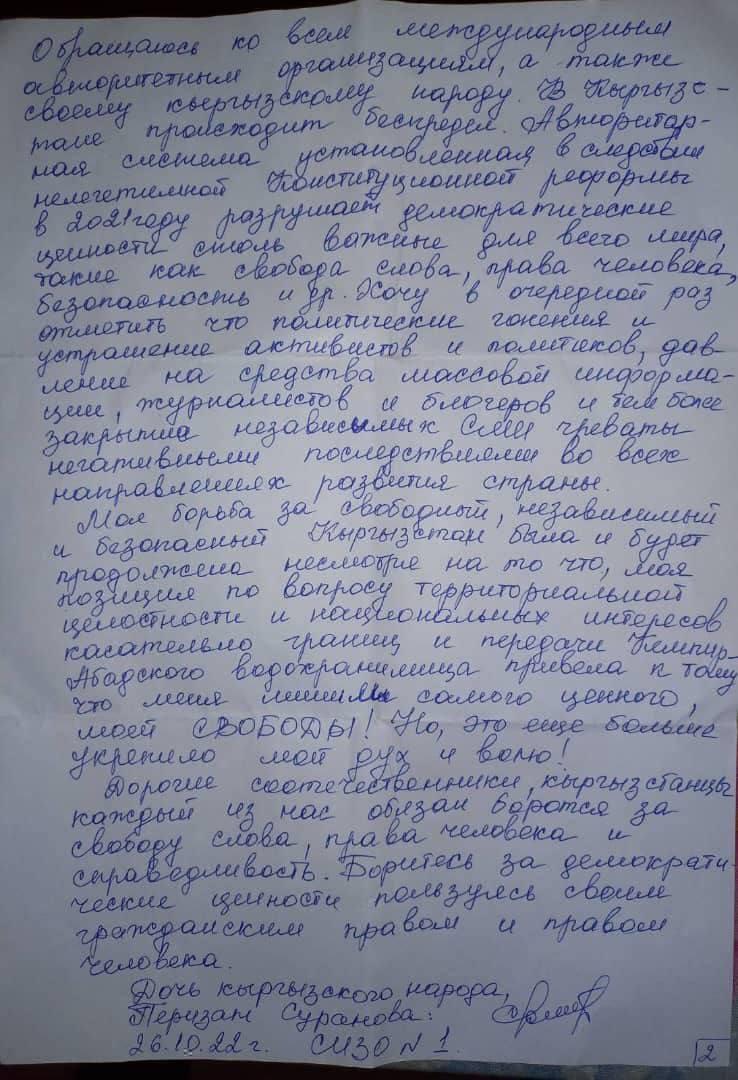 Обращаюсь ко всем международным
авторитетным организациям, а также
своему кыргызскому народу. В Кыргызс-
тане происходит беспредел. Авторитар-
ная система установленная в следствии
нелегетимной Конституционной реформы
в 2021 году разрушает демократические
ценности столь важные для всего мира,
такие как свобода слова, права человека,
безопасность и др. Хочу в очередной раз
отметить что политические гонения и
устрашение активистов и политиков, дав-
ление на средства массовой информа-
ции, журналистов и блогеров и тем более
закрытие независимых СМИ чреваты
негативными последствиями во всех
направлениях развития страны.
Моя борьба за свободный, независимый
и безопасный Кыргызстан была и будет
продолжена несмотря на то что, моя
позиция по вопросу территориальной
целостности и национальных интересов
касательно границ и передачи Кемпир-
Абадского водохранилища привела к тому
что меня лишили самого ценного,
моей СВОБОДЫ! Но, это еще больше
укрепило мой дух и волю!
Дорогие соотечественники, кыргызстанцы
каждый из нас обязан боротся за
свободу слова, права человека и
справедливость. Боритесь за демократи-
ческие ценности пользуясь своим
гражданским правом и правом
человека.
Дочь кыргызского народа,
Перизат Суранова:
26.10.22 г. СИЗО N 1.
2